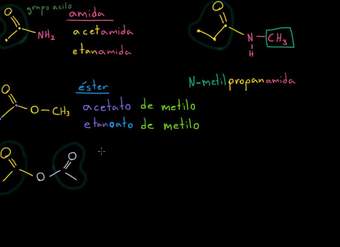 grupo acilo
amida
O
NH₂
acetamida
etanamida
O
N
CH₃
H
N-metilpropanamida
O
O
CH₃
éster
acetato de metilo
etanoato de metilo
O
O
O